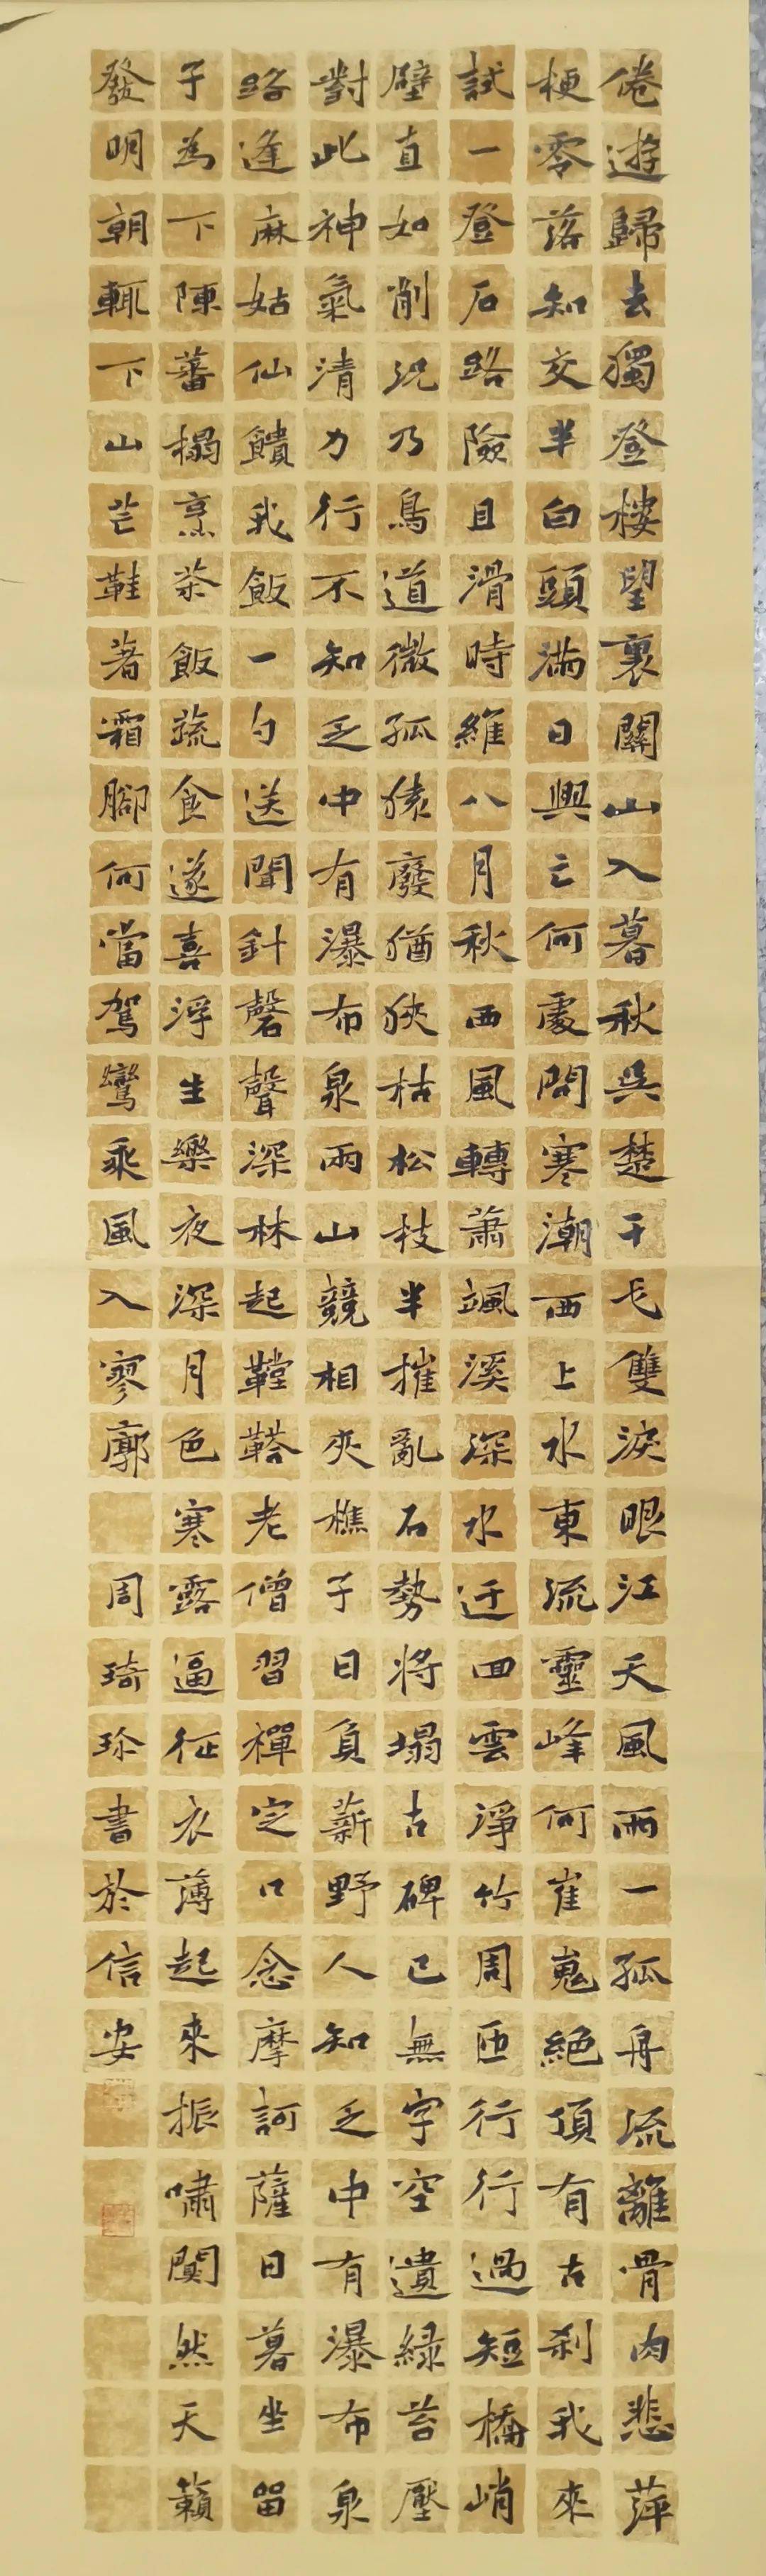 倦遊歸去獨登樓望裏關山入暮秋吳楚干戈雙淚眼江天風雨一孤舟流離骨肉悲萍
梗零落知交半白頭滿日興亡何處問寒潮西上水東流靈峰何崔嵬絕頂有古刹我來
試一登石路險且滑時維八月秋西風轉蕭颯溪深水迂回雲淨竹周匝行行過短橋峭
壁直如削況乃鳥道微孤猿廢猶狹枯松枝半摧亂石勢將塌古碑已無字空遺綠苔壓
對此神氣清力行不知乏中有瀑布泉兩山競相夾樵子日負薪野人知乏中有瀑布泉
路逢麻姑仙饋我飯一勺送聞針磬聲深林起鞺鞳老僧習禪定口念摩訶薩日暮坐留
子為下陳蕃榻烹茶飯蔬食遂喜浮生樂夜深月色寒露逼征衣薄起來振嘯闃然天籟
發明朝輒下山芒鞋著霜腳何當駕鸞乘風入寥廓
周琦珍書於信安